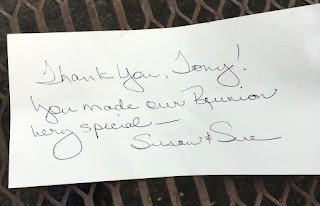 Thank You, Tony!
You made our Reunion
very special —
Susan & Sue